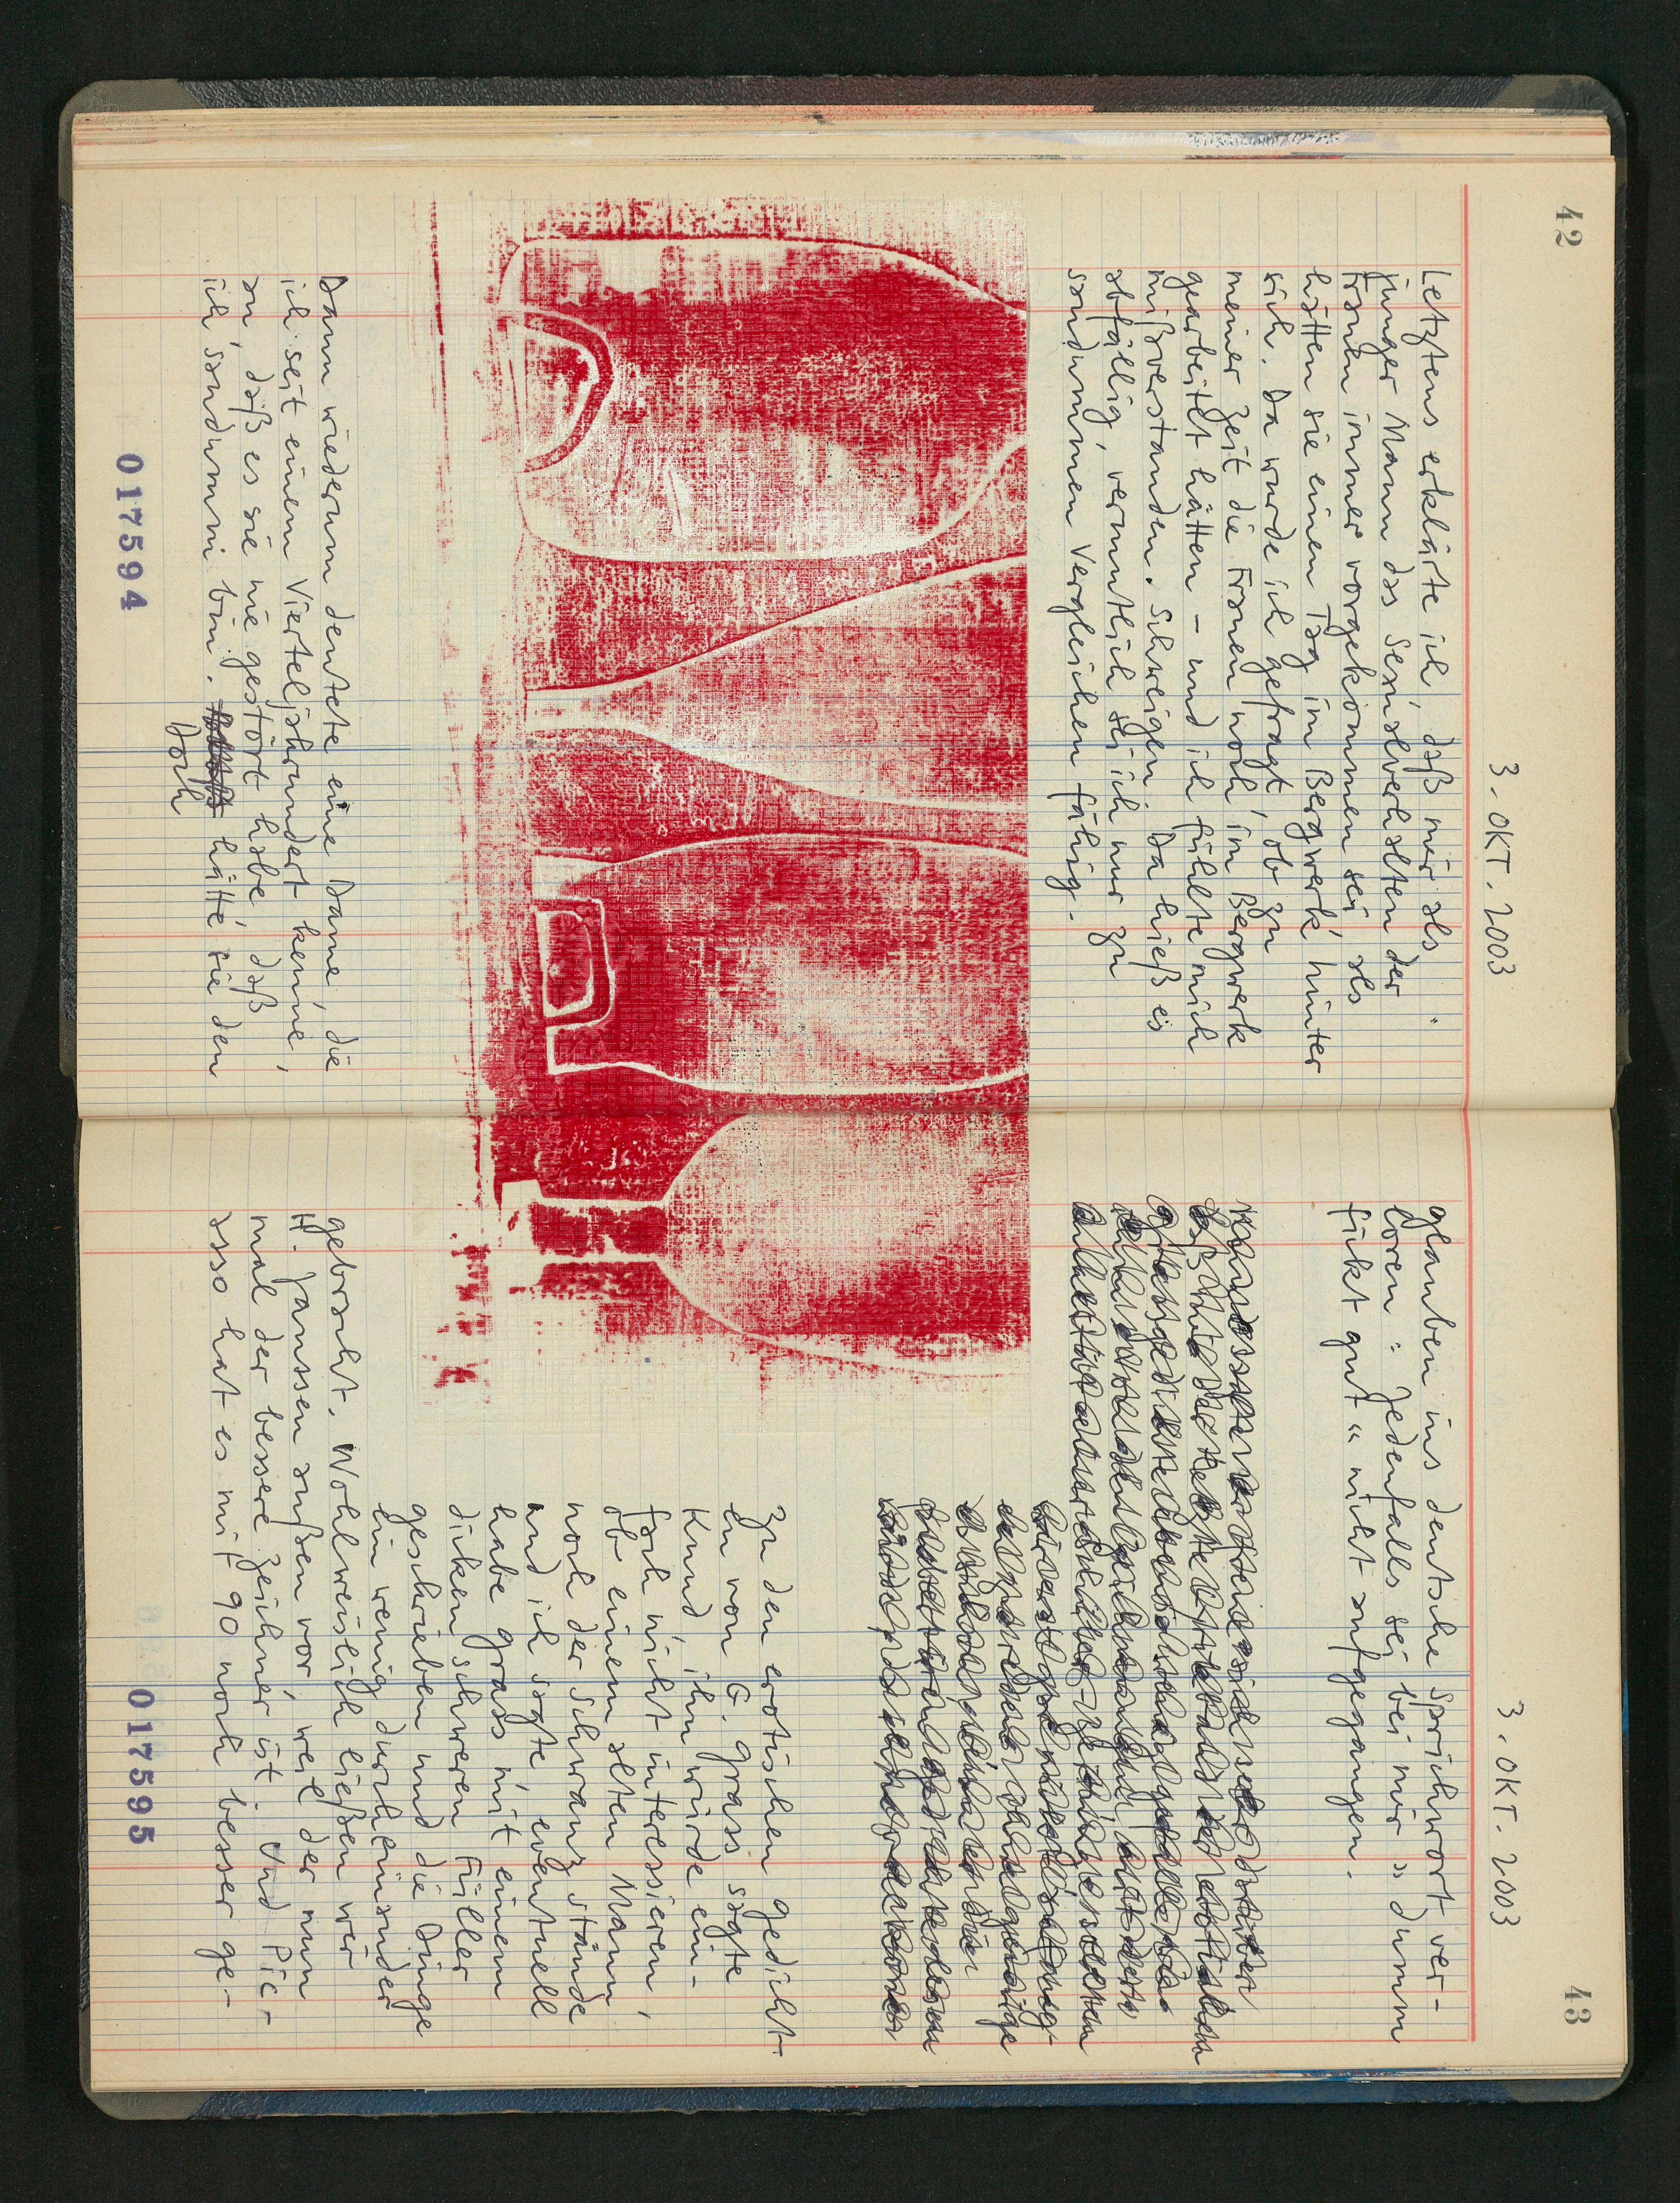 42
3. OKT. 2003
Letztens erklärte ich, daß mir als
junger Mann das Sexualverhalten der
Frauen immer vorgekommen sei als
hätten sie einen Tag im Bergwerk hinter
sich. Da wurde ich gefragt, ob zu
meiner Zeit die Frauen noch im Bergwerk
gearbeitet hätten – und ich fühlte mich
mißverstanden. Schweigen. Da hieß es
abfällig, vermutlich sei ich nur zu
saudummen Vergleichen fähig.
Dann wiederum deutete eine Dame, die
ich seit einem Vierteljahrhundert kenne,
an, daß es sie nie gestört habe, daß
ich saudumm bin. hätte sie den
Doch
017594
43
3. OKT. 2003
glauben ins deutsche Sprichwort ver-
loren: Jedenfalls sei bei mir » dumm
fickt gut « nicht aufgegangen.
Zu den erotischen Gedicht-
en von G. Grass sagte
Kund, ihn würde ein-
fach nicht interessieren,
ob einem alten Mann
noch der Schwanz stände
und ich sagte, eventuell
habe Grass mit einem
dicken schweren Füller
geschrieben und die Dinge
ein wenig durcheinander
gebracht. Wohlweislich ließen wir
H. Janssen außen vor, weil der nun
mal der bessere Zeichner ist. Und Pic-
asso hat es mit 90 noch besser ge-
017595